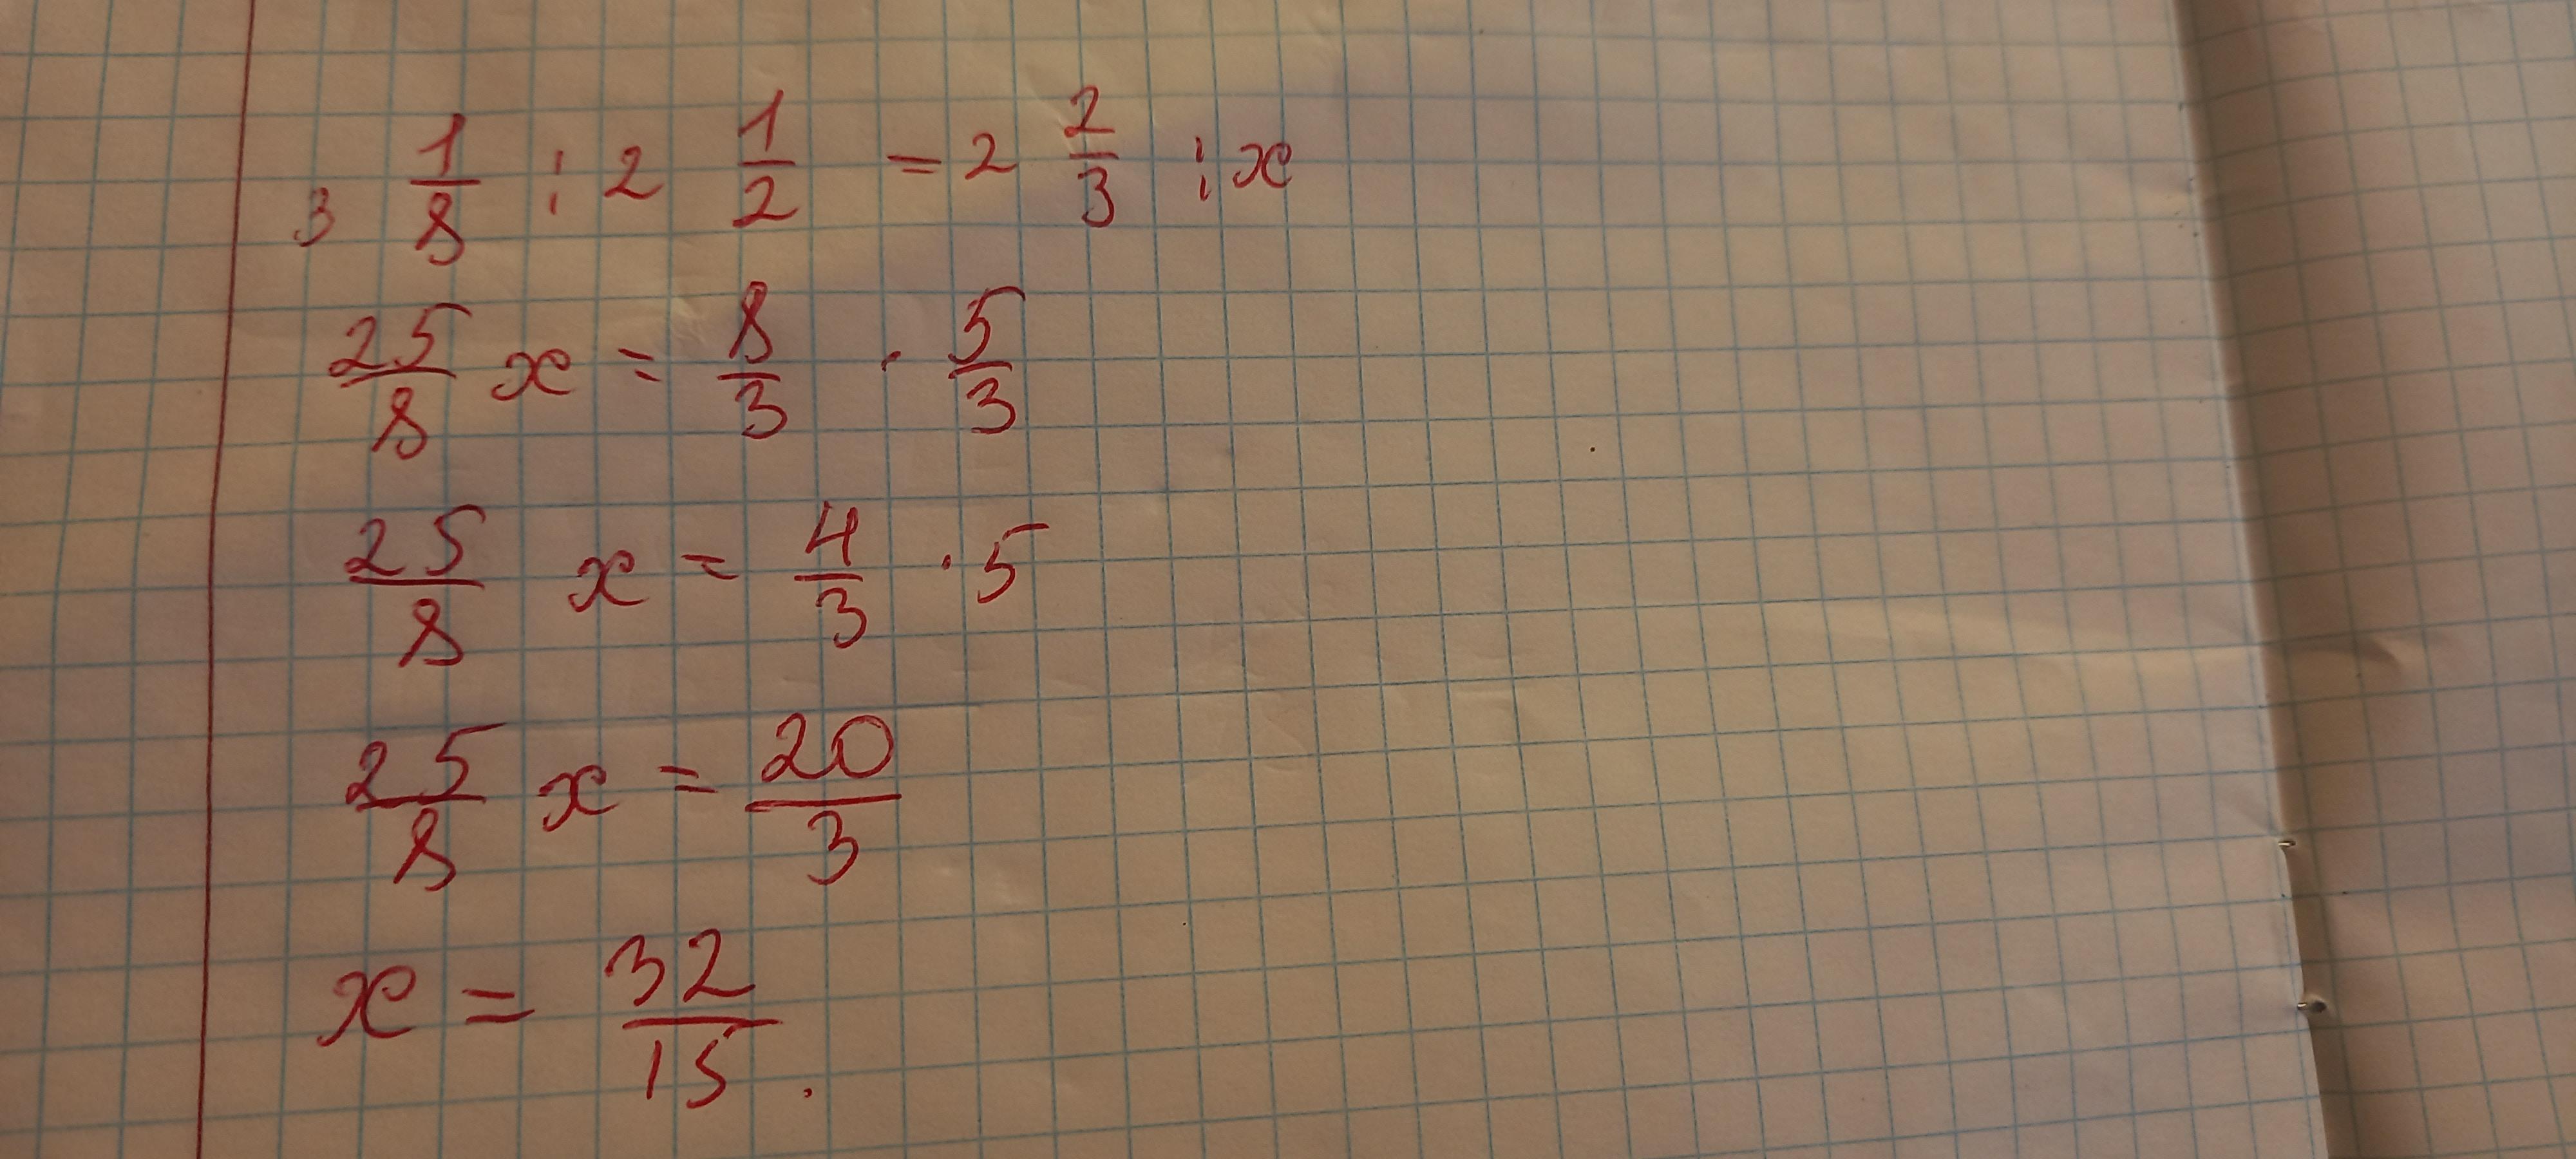 3 1/8 : 2 1/2 = 2 2/3 : x
25/8 x = 8/3 · 5/3
25/8 x = 4/3 · 5
25/8 x = 20/3
x = 32/15.